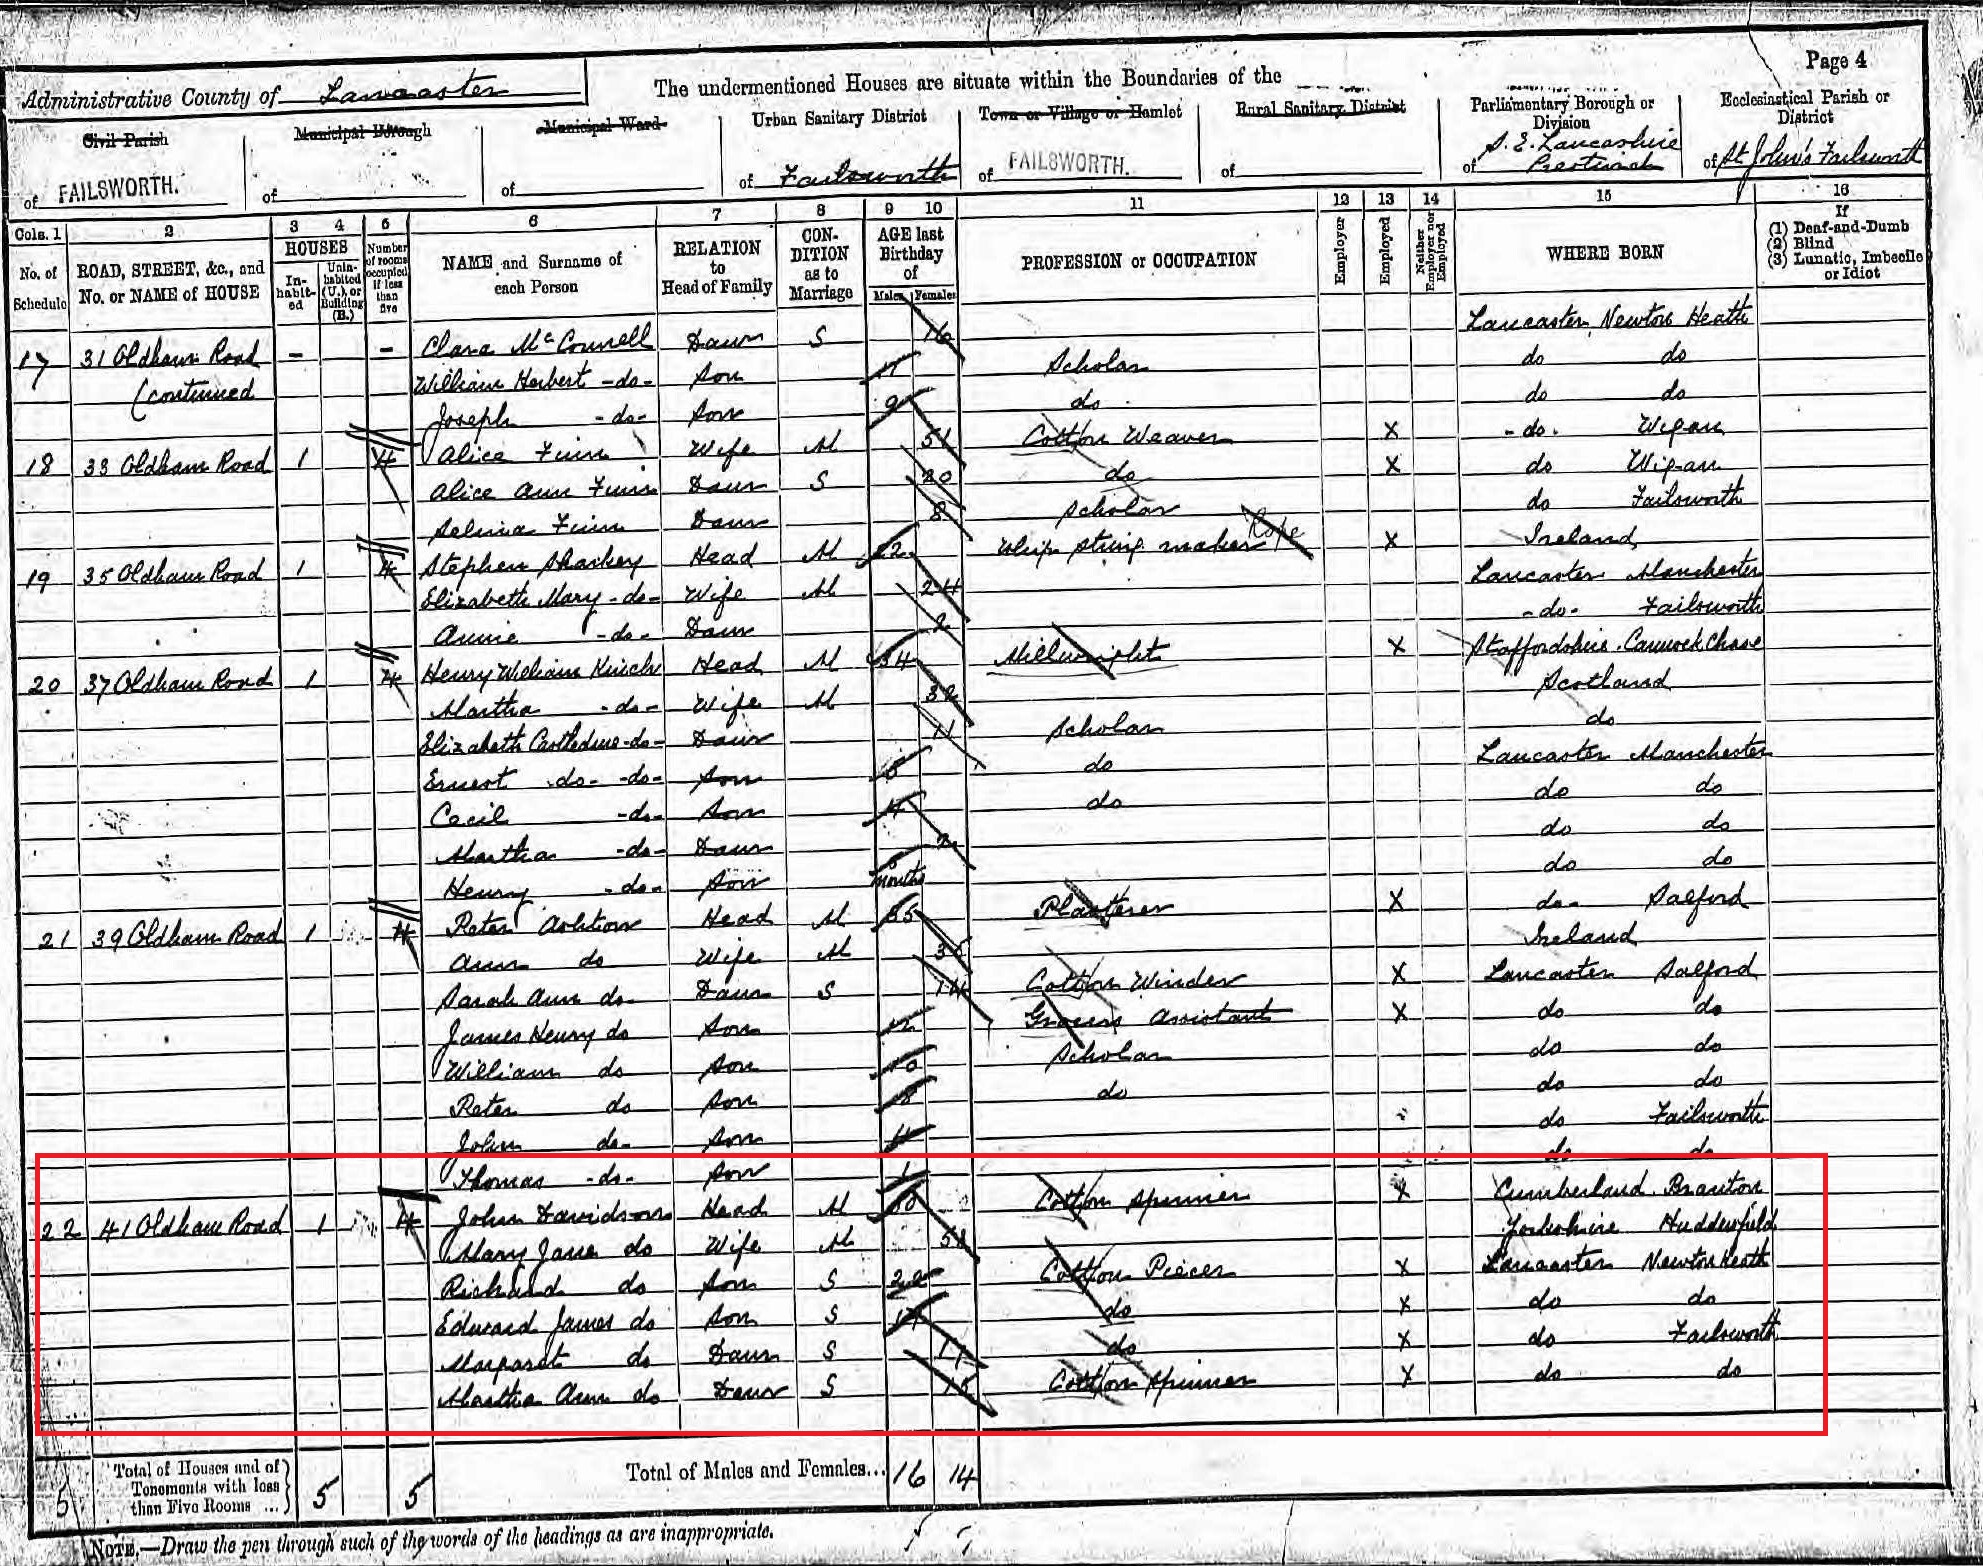 Page 4
The undermentioned Houses are situate within the Boundaries of the
Administrative County of Lancaster
Civil Parish
of FAILSWORTH.
Municipal Borough
of
Municipal Ward
of
Urban Sanitary District
of Failsworth
Town or Village or Hamlet
of FAILSWORTH.
Rural Sanitary District
of
Parliamentary Borough or Division
of S. E. Lancashire Prestwich
Ecclesiastical Parish or District
of St John's Failsworth
Cols. 1 2 3 4 5 6 7 8 9 10 11 12 13 14 15 16
No. of Schedule
ROAD, STREET, &c., and No. or NAME of HOUSE
HOUSES
In-habit-ed
Unin-habited (U.), or Building (B.)
Number of rooms occupied if less than five
NAME and Surname of each Person
RELATION to Head of Family
CON-DITION as to Marriage
AGE last Birthday of
Males Females
PROFESSION or OCCUPATION
Employer
Employed
Neither Employer nor Employed
WHERE BORN
If
(1) Deaf-and-Dumb
(2) Blind
(3) Lunatic, Imbecile or Idiot
17 31 Oldham Road - - Clara McConnell Daur S 16 Lancaster Newton Heath
(continued William Herbert -do- Son Scholar do do
Joseph -do- Son 9 do do do
18 33 Oldham Road 1 4 Alice Finn Wife M 51 Cotton Weaver X -do- Wigan
Alice Ann Finn Daur S 20 do X do Wigan
Selina Finn Daur 8 Scholar do Failsworth
19 35 Oldham Road 1 4 Stephen Sharkey Head M 22 Whip string maker Rope X Ireland
Elizabeth Mary -do- Wife M 24 Lancaster Manchester
Annie -do- Daur 2 -do- Failsworth
20 37 Oldham Road 1 4 Henry William Head M 34 Millwright X Staffordshire Cannock Chase
Martha -do- Wife M 32 Scotland
Elizabeth -do- Daur 11 Scholar do
Ernest -do- -do- Son do Lancaster Manchester
Cecil -do- Son 4 do do do
Martha -do- Daur 2 do do
Henry -do- Son months do do
21 39 Oldham Road 1 4 Peter Ashton Head M 35 Plasterer X do- Salford
Ann do Wife M Ireland
Sarah Ann do- Daur S 14 Cotton Winder X Lancaster Salford
James Henry do Son 12 Grocers Assistant X do do
William do Son 10 Scholar do do
Peter do Son 8 do do do
John do- Son 4 do Failsworth
Thomas -do- Son 1 do do
22 41 Oldham Road 1 4 John Davidson Head M 60 Cotton Spinner X Cumberland
Mary Jane do Wife M Yorkshire Huddersfield
Richard do Son S 22 Cotton Piecer X Lancaster Newton Heath
Edward James do Son S do X do do
Margaret do Daur S do X do Failsworth
Martha Ann do Daur S 15 Cotton Spinner X do do
5 Total of Houses and of Tenements with less than Five Rooms ... 5 5 Total of Males and Females... 16 14
NOTE.—Draw the pen through such of the words of the headings as are inappropriate.